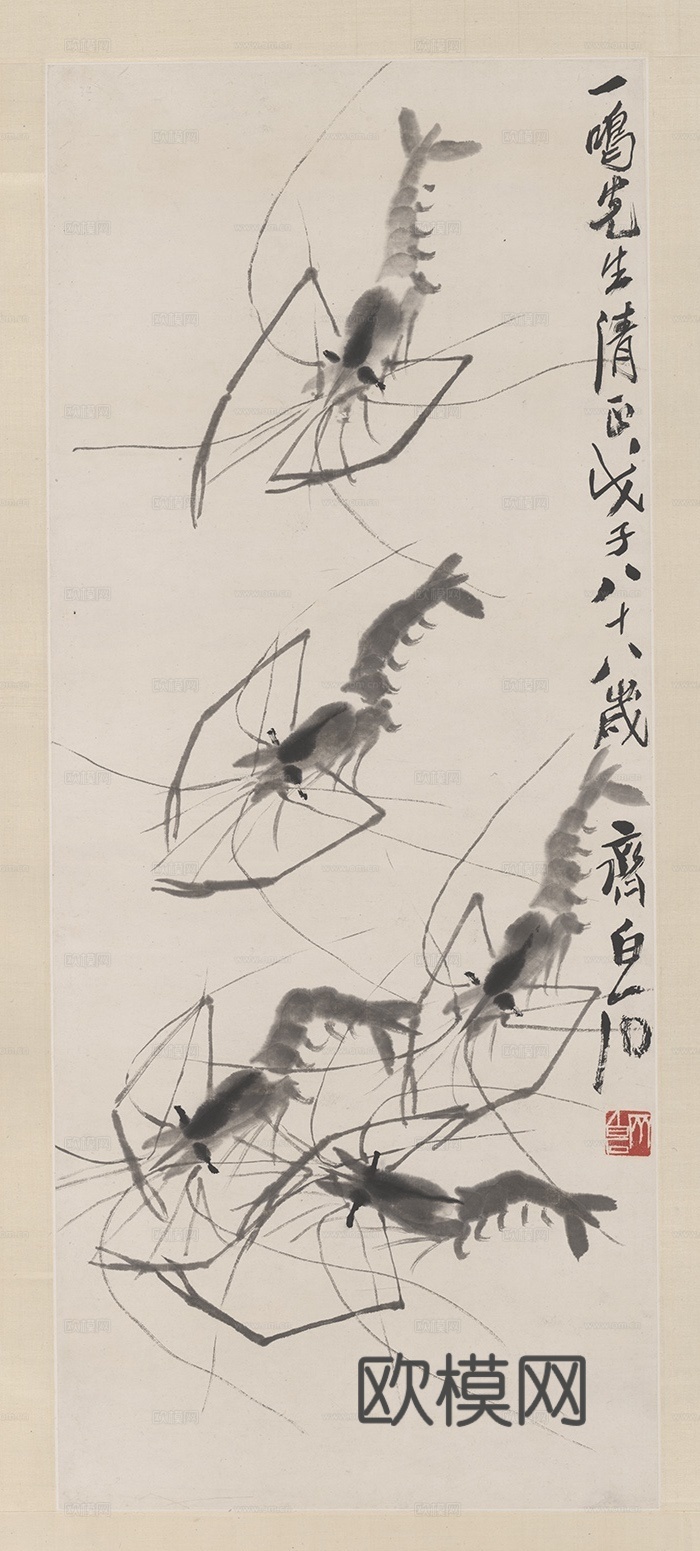 一鳴先生清正戊子八十八歲
齊白石
欧模网